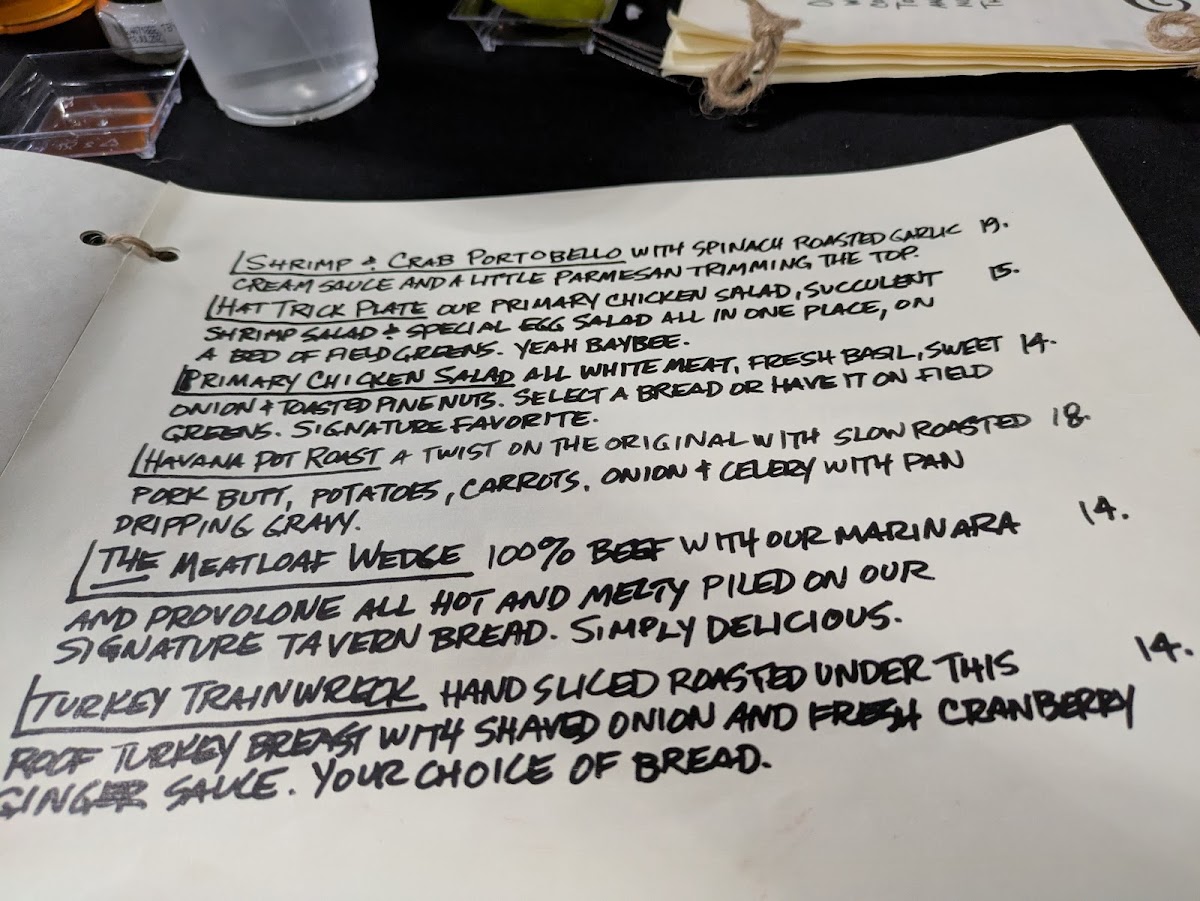 SHRIMP & CRAB PORTOBELLO WITH SPINACH ROASTED GARLIC 19.
CREAM SAUCE AND A LITTLE PARMESAN TRIMMING THE TOP.
HAT TRICK PLATE OUR PRIMARY CHICKEN SALAD, SUCCULENT 15.
SHRIMP SALAD & SPECIAL EGG SALAD ALL IN ONE PLACE, ON
A BED OF FIELD GREENS. YEAH BAYBEE.
PRIMARY CHICKEN SALAD ALL WHITE MEAT, FRESH BASIL, SWEET 14.
ONION & TOASTED PINE NUTS. SELECT A BREAD OR HAVE IT ON FIELD
GREENS. SIGNATURE FAVORITE.
HAVANA POT ROAST A TWIST ON THE ORIGINAL WITH SLOW ROASTED 18.
PORK BUTT, POTATOES, CARROTS, ONION & CELERY WITH PAN
DRIPPING GRAVY.
THE MEATLOAF WEDGE 100% BEEF WITH OUR MARINARA 14.
AND PROVOLONE ALL HOT AND MELTY PILED ON OUR
SIGNATURE TAVERN BREAD. SIMPLY DELICIOUS.
TURKEY TRAINWRECK HAND SLICED ROASTED UNDER THIS 14.
ROOF TURKEY BREAST WITH SHAVED ONION AND FRESH CRANBERRY
GINGER SAUCE. YOUR CHOICE OF BREAD.